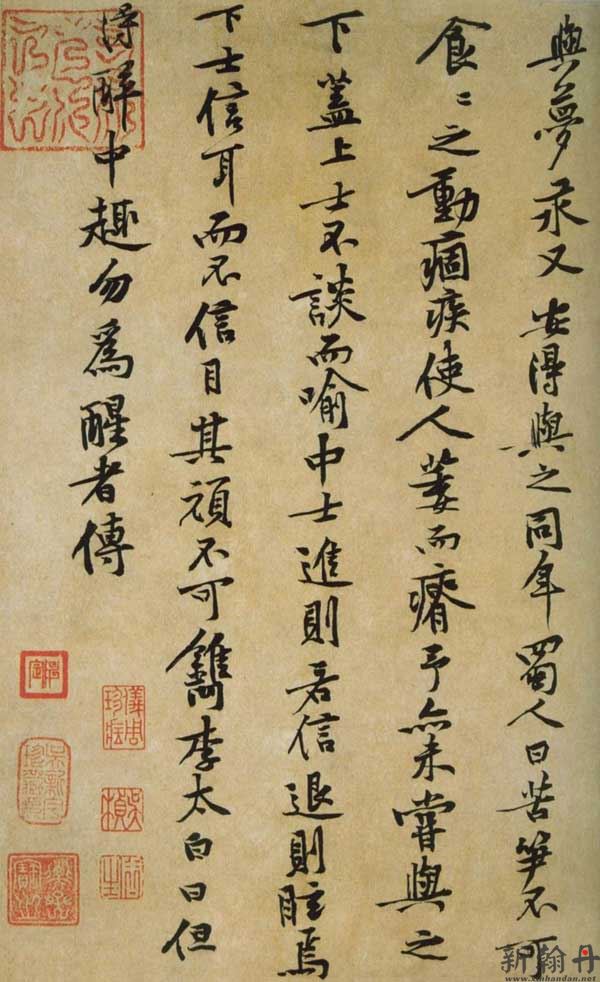 與夢汞又安得與之同年蜀人曰苦笋不可
食〻之動痼疾使人萎而瘠予亦未嘗與之
下蓋上士不談而喻中士進則若信退則眩焉
下士信耳而不信目其頑不可鐫李太白曰但
得醉中趣勿爲醒者傳
新翰丹
www.xinhandan.net